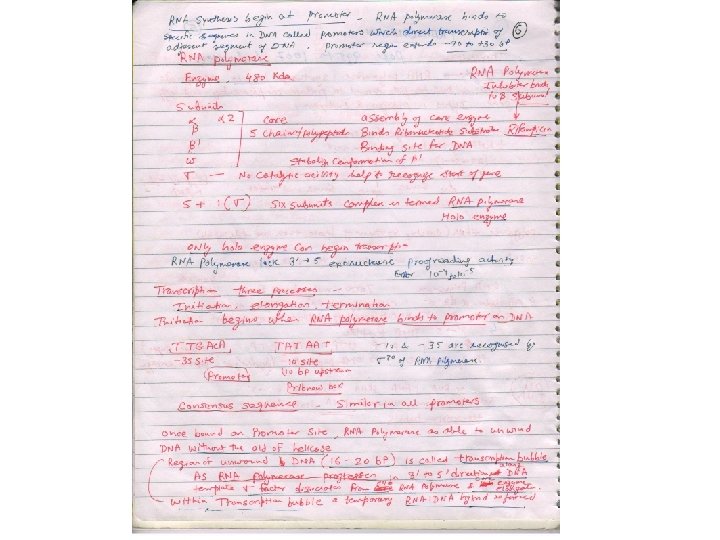 RNA Synthesis begin at Promoter. RNA polymerase binds to
specific sequence in DNA called promoters which direct transcription of
adjacent segment of DNA. promoter region extends -70 to +30 bp
5
RNA polymerase
Enzyme. 480 Kda.
RNA Polymerase
Inhibitor binds
to B subunit
Rifampicin
Subunits
α α2 Core assembly of core enzyme
β 5 chain/polypeptide Binds Ribonucleotide Substrate
β' Binding site for DNA
ω Stabolize Conformation of β'
σ -- No Catalytic activity help to recognize start of gene
5 + 1(σ) Six subunits complex is termed RNA polymerase
Holo enzyme
only holo enzyme can begin transcription
RNA Polymerase lack 3' → 5 exonuclease proofreading activity
Transcription three processes -
Initiation, elongation, termination
Initiation begins when RNA polymerase binds to promoter on DNA
TTGACA TATAAT -10 & -35 are recognised by
-35 site 10 site σ70 of RNA polymerase.
(Promoter) 10 bp upstream
Pribnow box
Consensus sequence - Similar in all promoters
once bound on Promoter Site, RNA Polymerase is able to unwind
DNA without the aid of helicase
Region of unwound DNA (16-20 bp) is called transcription bubble
AS RNA polymerase progresses in 3' to 5' direction along DNA
template σ factor dissociates from RNA Polymerase & enzyme
within Transcription bubble a temporary RNA:DNA hybrid is formed